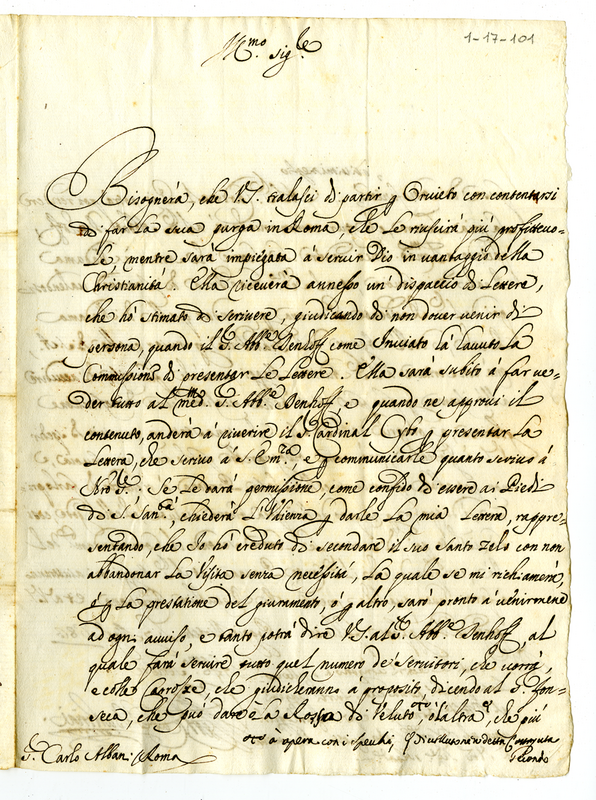 1-17-101
Ill.mo sig.re
Bisognerà, che V.S. tralasci di partir p Orvieto con contentarsi
di far la sua purga in Roma, che le riuscirà più profittevo=
le, mentre sarà impiegata à servir Dio in vantaggio della
Christianità. Ella riceverà annesso un' dispaccio di Lettere,
che hò stimato di scrivere, giudicando di non dover venir di
persona, quando il S.r Abb.e Denhoff come Inviato là havuto la
Commissione di presentar le Lettere. Ella sarà subito à far ve=
der tutto al med.mo S. Abb.e Denhoff, e quando ne approvi il
contenuto, anderà à riverire il S. Cardinal Cybo p presentar la
Lettera, che scrivo à S. Em.za, e p communicarle quanto scrivo à
Nro S.re. Se le darà permissione, come confido di essere ai Piedi
di S. San.tà, chiederà l'Udienza p darle la mia Lettera, rappre=
sentando, che Io hò creduto di secondare il suo santo zelo con non
abbandonar la Visita senza necessità, la quale se mi richiamerà,
ò p la prestatione del giuramento, ò p altro, sarò pronto à venirmene
ad ogni avviso, e tanto potrà dire V.S. al S. Abb.e Denhoff, al
quale farà servire tutto quel numero de' Servitori, che vorrà,
e colle Carrozze, che giudicheranno à proposito, dicendo al S. Fon=
seca, che può dare ò la Rossa di Veluto, ò l'altra, che più
à opera con i specchi,
S. Carlo Albani Roma